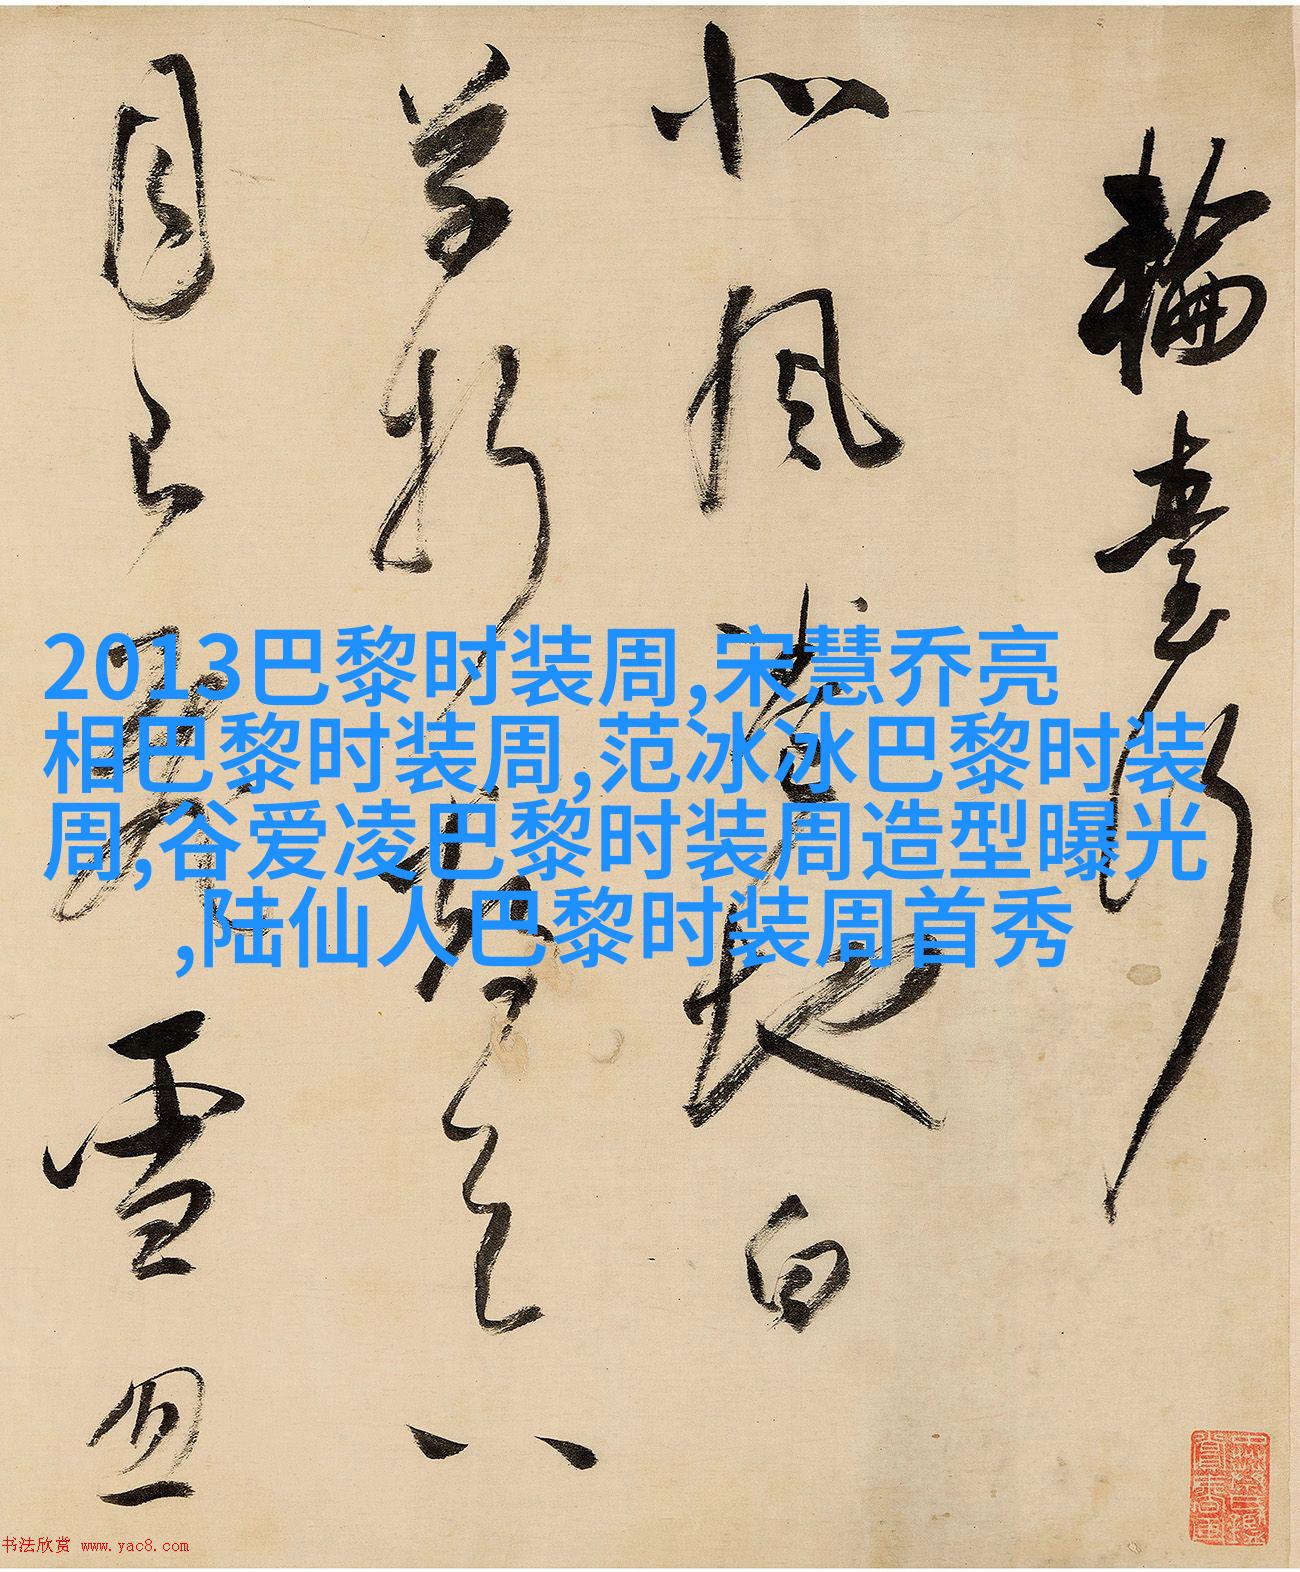 輪臺行
北風卷地白
草折胡天八
月即飛雪
2013巴黎时装周,宋慧乔亮
相巴黎时装周,范冰冰巴黎时装
周,谷爱凌巴黎时装周造型曝光
,陆仙人巴黎时装周首秀
书法欣赏 www.yac8.com